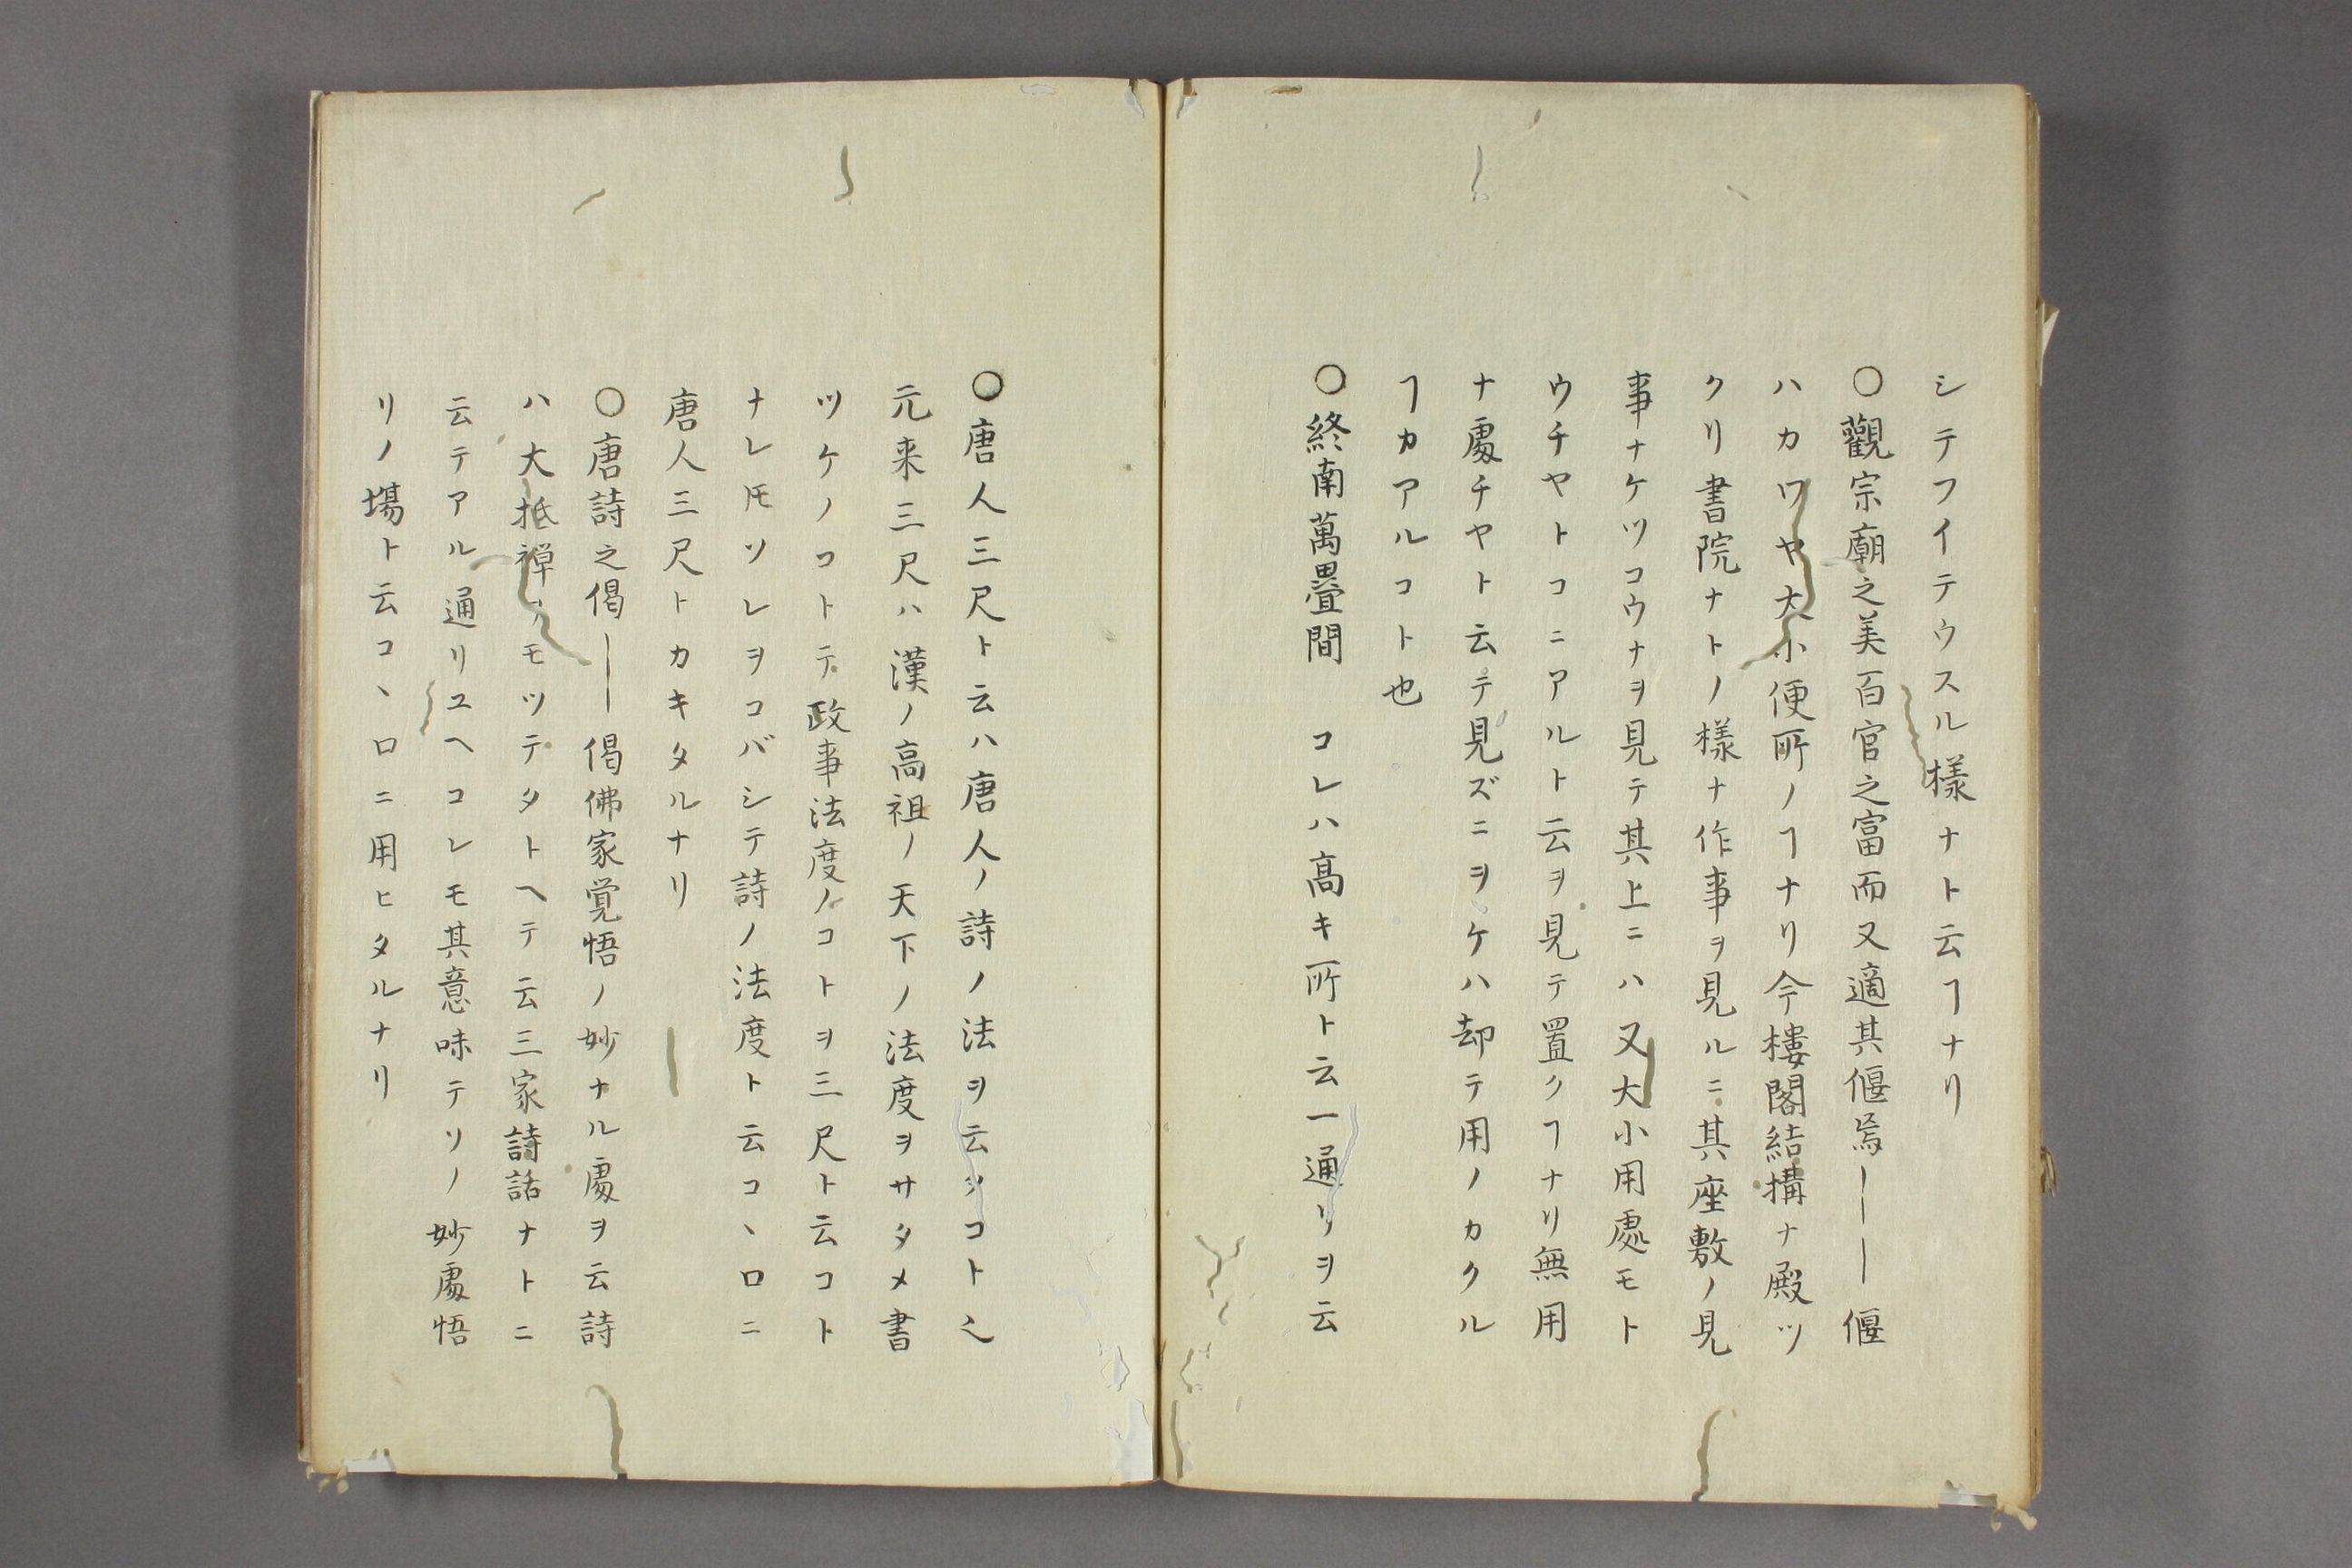 シテフイテウスル様ナト云ヿナリ
○觀宗廟之美百官之富而又適其偃焉―――偃
ハカワヤ大小便所ノヿナリ今樓閣結構ナ殿ツ
クリ書院ナトノ様ナ作事ヲ見ルニ其座敷ノ見
事ナケツコウナヲ見テ其上ニハ又大小用處モト
ウチヤトコニアルト云ヲ見テ置クヿナリ無用
ナ處チヤト云テ見ズニヲケハ却テ用ノカクル
ヿカアルコト也
○終南萬疊間　コレハ高キ所ト云一通リヲ云
○唐人三尺ト云ハ唐人ノ詩ノ法ヲ云タコト也
元来三尺ハ漢ノ高祖ノ天下ノ法度ヲサタメ書
ツケノコトテ政事法度ノコトヲ三尺ト云コト
ナレ𪜈ソレヲコバシテ詩ノ法度ト云コヽロニ
唐人三尺トカキタルナリ
○唐詩之偈――偈佛家覚悟ノ妙ナル處ヲ云詩
ハ大抵禅ヲモツテタトヘテ云三家詩話ナトニ
云テアル通リユヘコレモ其意味テソノ妙處悟
リノ場ト云コヽロニ用ヒタルナリ